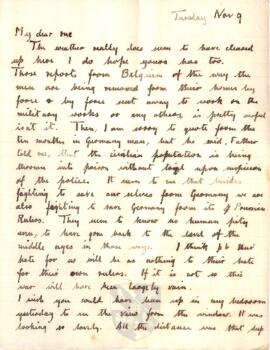 Tuesday Nov 9
My dear one
The weather really does seem to have cleared
up here I do hope yours has too.
Those reports from Belgium of the way the
men are being removed from their homes by
force & by force sent away to work on the
military works or any others is pretty awful
isn't it. Then, I am sorry to quote from the
ten months in Germany man, but he said, Father
told me, that the civilian population is being
thrown into prison without trial upon suspicion
of the police. It seems to me that besides
fighting to save our selves from Germany we are
also fighting to save Germany from its Prussian
Rulers. They seem to know no human pity
even, to have gone back to the level of the
middle ages in those ways. I think their
hate for us will be as nothing to their hate
for their own rulers. If it is not so this
war will have been largely vain.
I wish you could have been up in my bedroom
yesterday to see the view from the window. It was
looking so lovely. All the distance was that deep